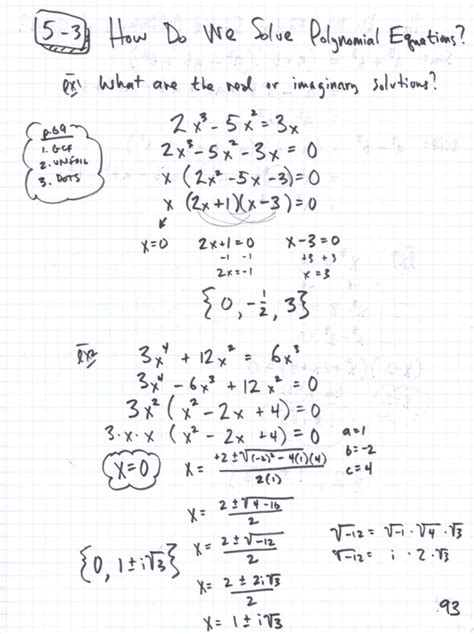 5-3 How Do We Solve Polynomial Equations?
ex1 What are the real or imaginary solutions?
p.69
1. GCF
2. UNFOIL
3. DOTS
2x³-5x²=3x
2x³-5x²-3x=0
x(2x²-5x-3)=0
x(2x+1)(x-3)=0
x=0 2x+1=0 x-3=0
-1 -1 +3 +3
2x=-1 x=3
{0, -1/2, 3}
ex2 3x⁴ + 12x² = 6x³
3x⁴ - 6x³ + 12x² = 0
3x²(x² - 2x + 4) = 0
3·x·x (x² - 2x + 4) = 0
a=1
b=-2
c=4
x=0 x = +2±√(-2)²-4(1)(4) / 2(1)
x = 2±√4-16 / 2
x = 2±√-12 / 2
√-12 = √-1·√4·√3
√-12 = i·2·√3
{0, 1±i√3}
x = 2±2i√3 / 2
x = 1±i√3
93